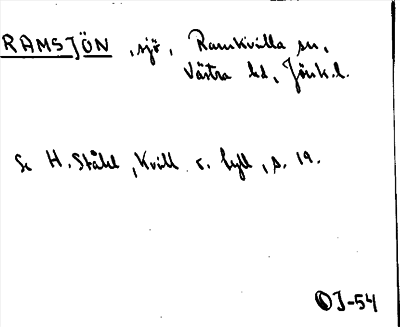 RAMSJÖN, sjö, Ramkvilla sn,
Västra hd, Jönk.l.
Se H. Ståhl, Kvill o. fyll, s. 19.
OJ-54